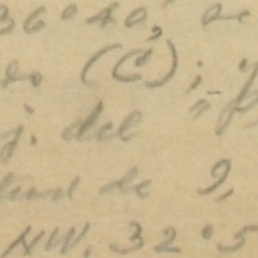 36°40', de
(C); y
j. del
tud de 9,
NW. 32°5